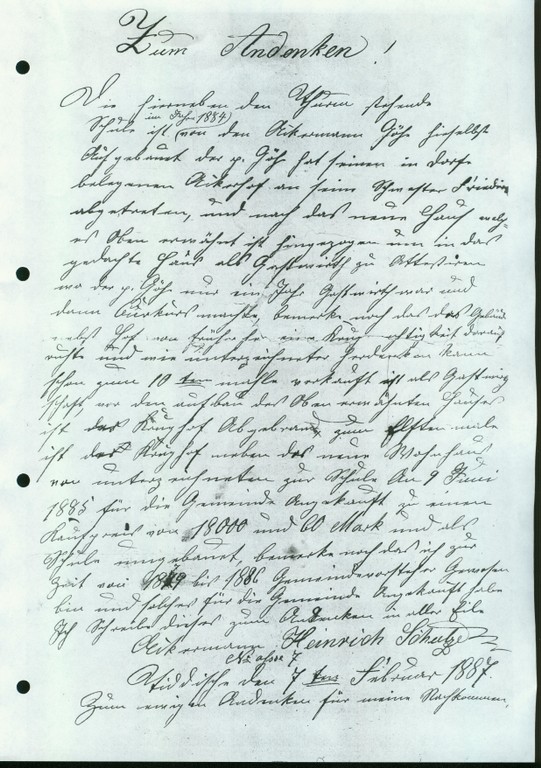 Zum Andenken!
Die hierneben den Thurm stehende
Schule ist (im Jahre 1884) von den Ackermann Göhr hieselbst
Aufgebaut der p. Göhr hat seinen in Dorfe
belegenen Ackerhof an seine Schwester
abgetreten, und nach das neue Haus welch-
es Oben erwähnt ist hingezogen um in das
gedachte Haus als Gastwirth zu
wo der p. Göhr nur ein Jahr Gastwirth war und
dann Conkurs machte, bemerke noch das das Gebäude
nebst Hof von früher her eine Krug darauf
ruhte und wie unterzeichneter Gedenken kann
schon zum 10 ten mahle verkauft ist als Gastwirth-
schaft, vor den aufbau des Oben erwähnten Hauses
ist der Krughof Abgebrannt zum Elften male
ist der Krughof neben das neue Wohnhaus
von unterzeichneten zur Schule An 9 Juni
1885 für die Gemeinde Angekauft zu einem
Kaufpreis von 18000 und 60 Mark und als
Schule umgebaut, bemerke noch das ich zur
Zeit von bis 1886 Gemeindevorsteher Gewesen
bin und solches für die Gemeinde Angekauft habe
Ich Schreibe dieses zum Andenken in aller Eile
Ackermann Heinrich Schulze
No 7
Tiddische den 7 ten Februar 1887.
Zum ewigen Andenken für meine Nachkommen,